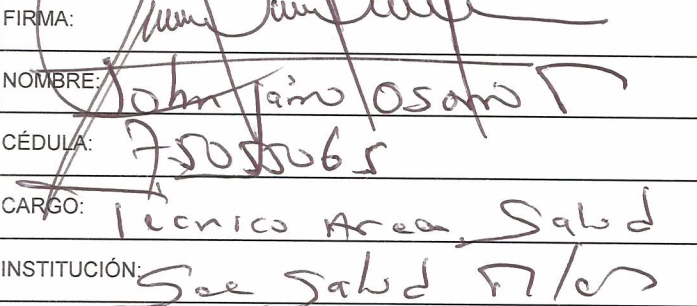 FIRMA:
NOMBRE: John Jairo Osorio
CÉDULA: 75055065
CARGO: Técnico Area Salud
INSTITUCIÓN: Sec Salud